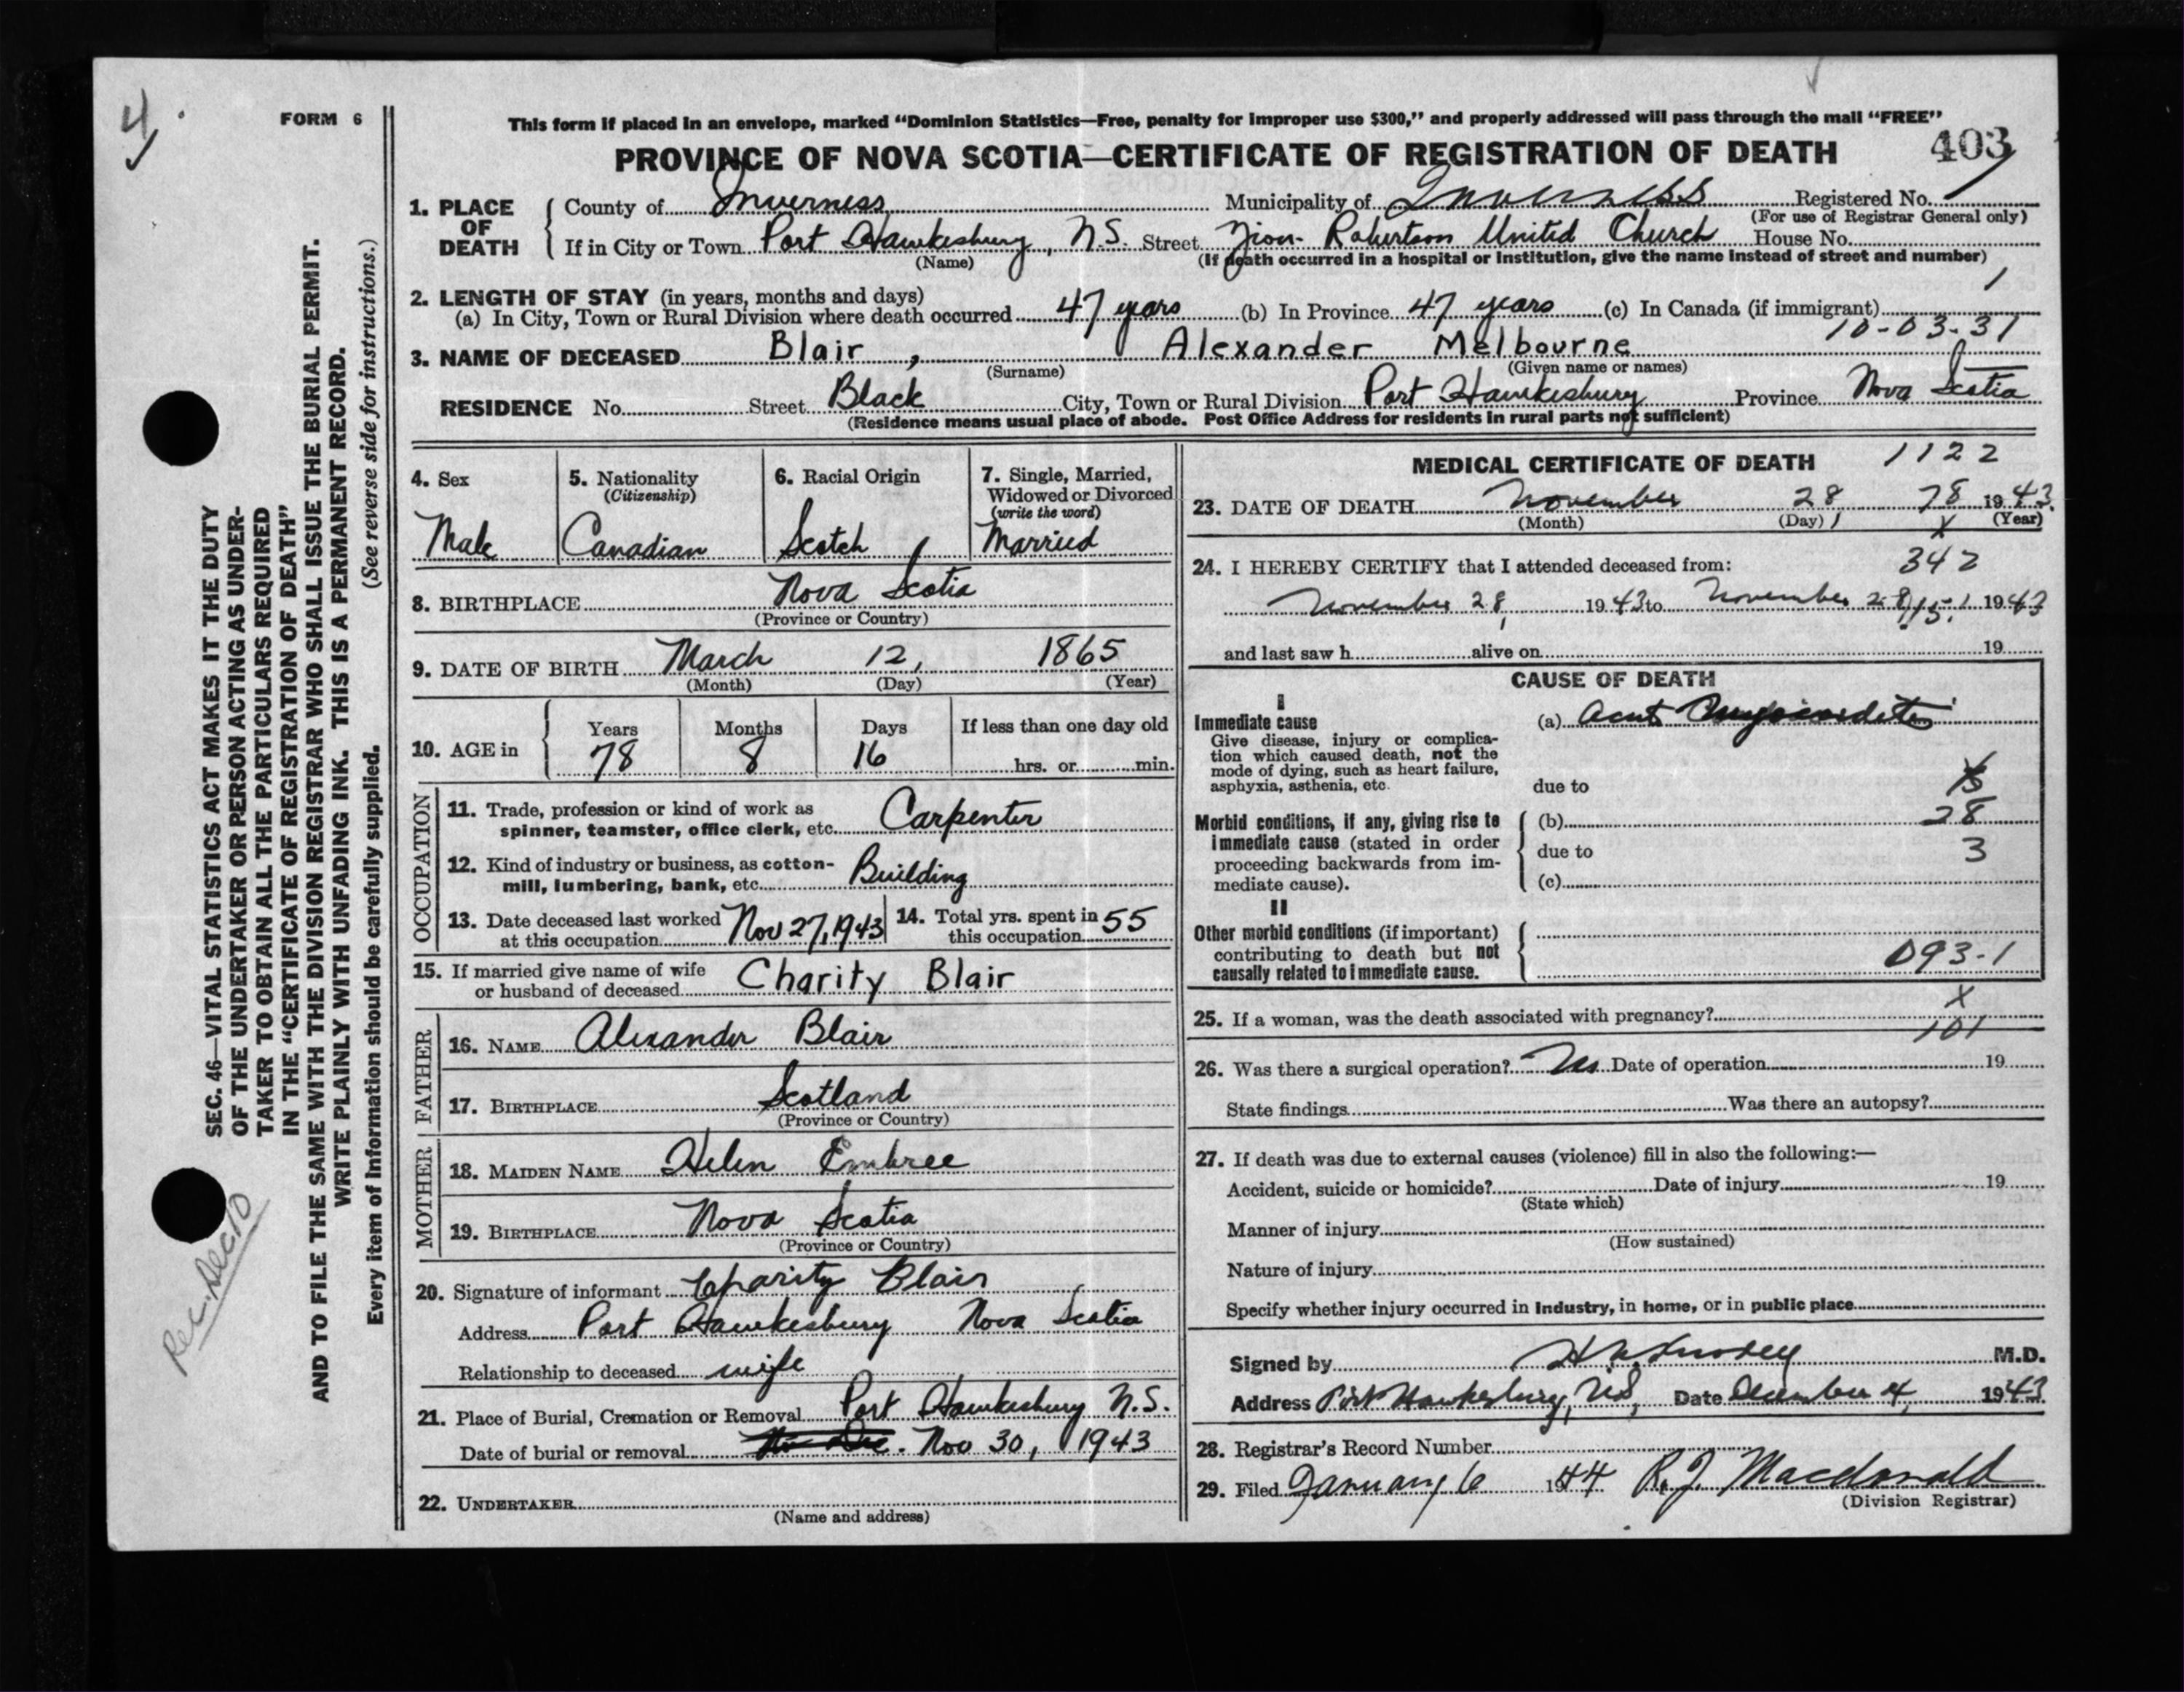 4.
FORM 6
This form if placed in an envelope, marked “Dominion Statistics—Free, penalty for improper use $300,” and properly addressed will pass through the mail “FREE”
PROVINCE OF NOVA SCOTIA—CERTIFICATE OF REGISTRATION OF DEATH 403
1. PLACE OF DEATH
County of Inverness Municipality of Inverness Registered No.
(For use of Registrar General only)
If in City or Town Port Hawkesbury, N.S. Street Zion-Robertson United Church House No.
(Name) (If death occurred in a hospital or institution, give the name instead of street and number)
2. LENGTH OF STAY (in years, months and days) 1
(a) In City, Town or Rural Division where death occurred 47 years (b) In Province 47 years (c) In Canada (if immigrant)
10-03-31
3. NAME OF DECEASED Blair, Alexander Melbourne
(Surname) (Given name or names)
RESIDENCE No. Street Black City, Town or Rural Division Port Hawkesbury Province Nova Scotia
(Residence means usual place of abode. Post Office Address for residents in rural parts not sufficient)
4. Sex 5. Nationality (Citizenship) 6. Racial Origin 7. Single, Married, Widowed or Divorced (write the word)
Male Canadian Scotch Married
8. BIRTHPLACE Nova Scotia
(Province or Country)
9. DATE OF BIRTH March 12, 1865
(Month) (Day) (Year)
10. AGE in Years Months Days If less than one day old
78 8 16 hrs. or min.
OCCUPATION
11. Trade, profession or kind of work as spinner, teamster, office clerk, etc. Carpenter
12. Kind of industry or business, as cotton-mill, lumbering, bank, etc. Building
13. Date deceased last worked at this occupation Nov 27, 1943 14. Total yrs. spent in this occupation 55
15. If married give name of wife or husband of deceased Charity Blair
FATHER
16. NAME Alexander Blair
17. BIRTHPLACE Scotland
(Province or Country)
MOTHER
18. MAIDEN NAME Helen Embree
19. BIRTHPLACE Nova Scotia
(Province or Country)
20. Signature of informant Charity Blair
Address Port Hawkesbury Nova Scotia
Relationship to deceased wife
21. Place of Burial, Cremation or Removal Port Hawkesbury N.S.
Date of burial or removal Nov 30, 1943
22. UNDERTAKER
(Name and address)
MEDICAL CERTIFICATE OF DEATH 1122
23. DATE OF DEATH November 28 78 1943
(Month) (Day) (Year)
X
24. I HEREBY CERTIFY that I attended deceased from: 342
November 28, 1943 to November 28, 1943
and last saw h alive on 19
CAUSE OF DEATH
I
Immediate cause (a) Acut Myocarditis
Give disease, injury or complica-
tion which caused death, not the
mode of dying, such as heart failure,
asphyxia, asthenia, etc. due to
Morbid conditions, if any, giving rise to (b) 28
immediate cause (stated in order due to 3
proceeding backwards from im-
mediate cause). (c)
II
Other morbid conditions (if important)
contributing to death but not
causally related to immediate cause. 093-1
X
25. If a woman, was the death associated with pregnancy?
101
26. Was there a surgical operation? No Date of operation 19
State findings Was there an autopsy?
27. If death was due to external causes (violence) fill in also the following:—
Accident, suicide or homicide? Date of injury 19
(State which)
Manner of injury
(How sustained)
Nature of injury
Specify whether injury occurred in industry, in home, or in public place
Signed by M.D.
Address Port Hawkesbury, N.S, Date December 4, 1943
28. Registrar's Record Number
29. Filed January 6 1944 R.J. Macdonald
(Division Registrar)
SEC. 46—VITAL STATISTICS ACT MAKES IT THE DUTY
OF THE UNDERTAKER OR PERSON ACTING AS UNDER-
TAKER TO OBTAIN ALL THE PARTICULARS REQUIRED
IN THE “CERTIFICATE OF REGISTRATION OF DEATH”
AND TO FILE THE SAME WITH THE DIVISION REGISTRAR WHO SHALL ISSUE THE BURIAL PERMIT.
WRITE PLAINLY WITH UNFADING INK. THIS IS A PERMANENT RECORD.
Every item of information should be carefully supplied. (See reverse side for instructions.)
Rec. Dec 10